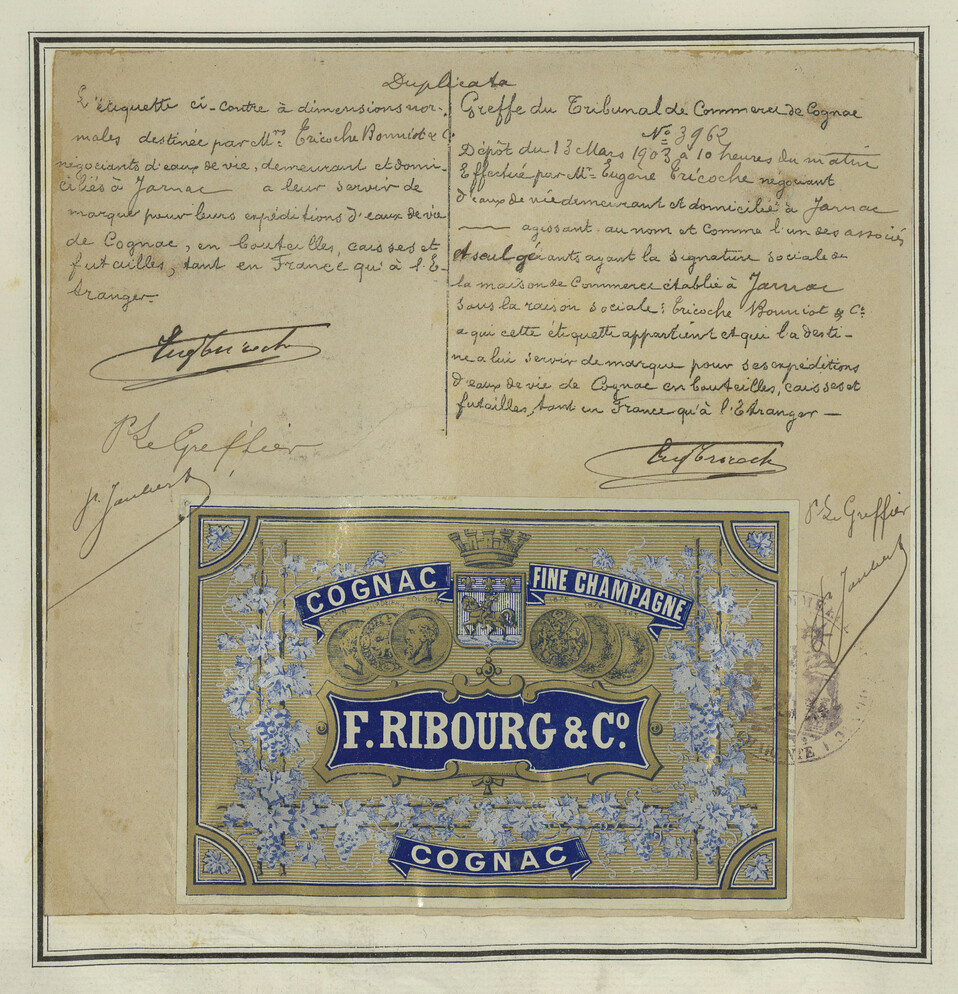 Duplicata
L'étiquette ci-contre à dimensions nor-
males destinée par Mrs Tricoche Bonniot & Co
négociants d'eaux de vie, demeurant et domi-
ciliés à Jarnac a leur servir de
marque pour leurs expéditions d'eaux de vie
de Cognac, en bouteilles, caisses et
futailles, tant en France qu'à l'E-
tranger
P. Le Greffier
Joubert
Greffe du Tribunal de Commerce de Cognac
No 3962
Dépôt du 13 Mars 1903 à 10 heures du matin
Effectué par Mr Eugène Tricoche négociant
d'eaux de vie demeurant et domicilié à Jarnac
agissant au nom et comme l'un des associés
et seul gérants ayant la signature sociale de
la maison de Commerce établie à Jarnac
sous la raison sociale : Tricoche Bonniot & Co
a qui cette étiquette appartient et qui la desti-
ne a lui servir de marque pour ses expéditions
d'eaux de vie de Cognac en bouteilles, caisses et
futailles, tant en France qu'à l'Etranger
P. Le Greffier
Joubert
COGNAC
FINE CHAMPAGNE
F. RIBOURG & Co.
COGNAC